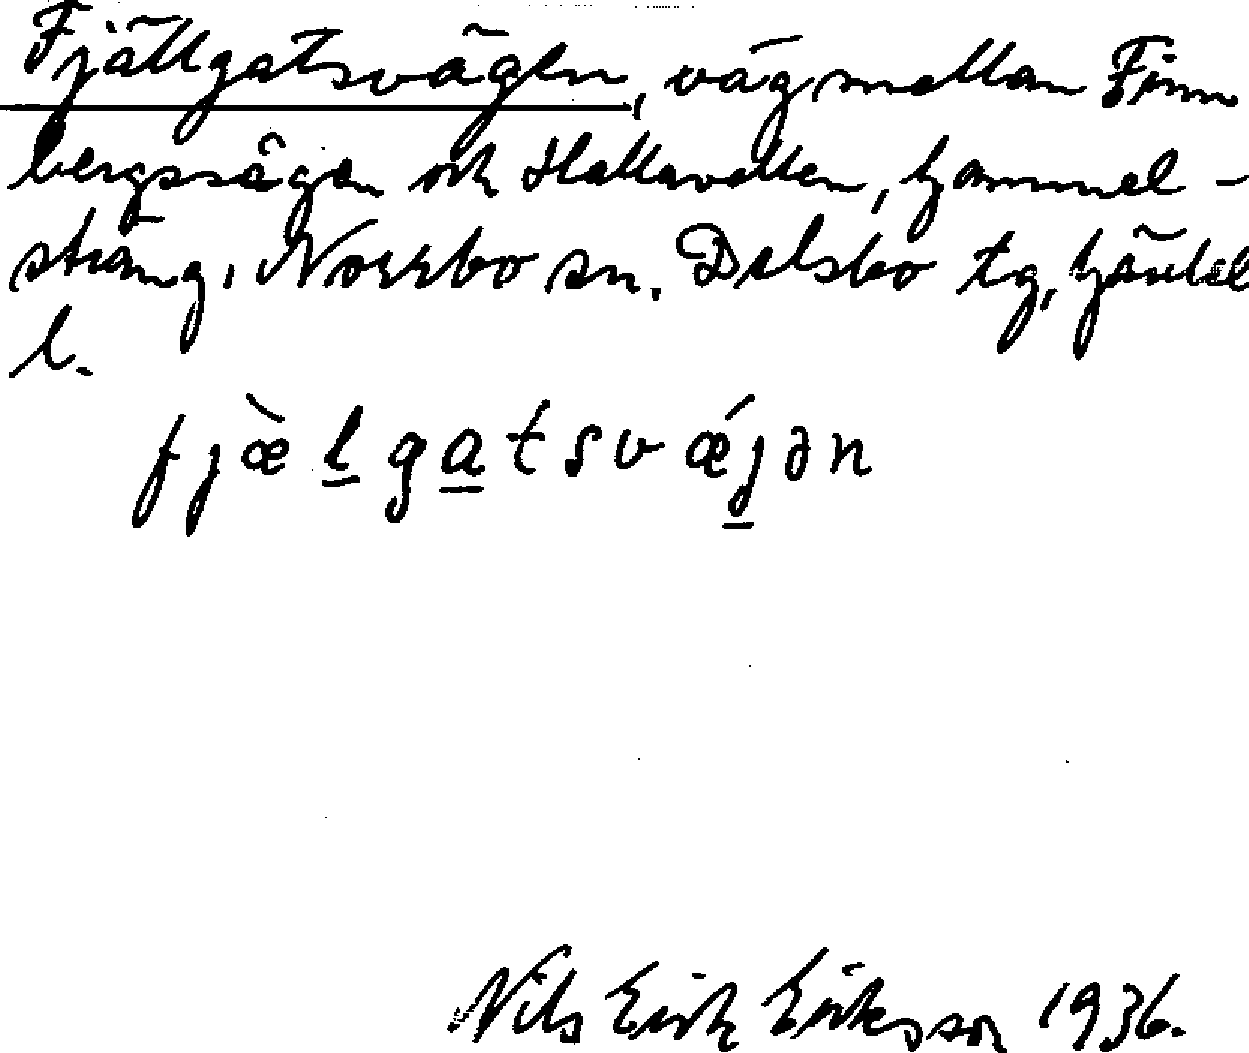 Fjällgatsvägen, väg mellan Finn
bergssågen och Hallavallen, Gammel-
sträng, Norrbo sn. Delsbo tg, Gävleb
l.
fjæ̀l̲ga̲tsvǽj̲ən
Nils Erik Eriksson 1936.